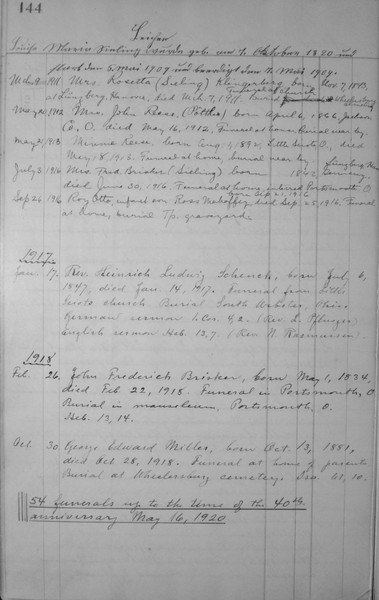 144
Leichen
Louise Marie Sieling wurde geb. am 7. Oktober 1820 und
starb den 5. Mai 1909 und beerdigt den 7. Mai 1909.
Mch 9 1911 Mrs. Rosetta (Sieling) Klingerberg born Nov. 7, 1843,
at Lüneburg, Hanove, died Mch. 7, 1911. buried Wheelersburg
Funeral at church
May 20, 1912 Mrs. John Rase, (Pottles) born April 6, 1866, Jackson
Co., O. died May 16, 1912. Funeral at home, Burial near by.
May 21, 1913 Minnie Keen, born Aug. 9, 1892, Little Scioto O., died
May 18, 1913. Funeral at home, burial near by
July 3, 1916 Mrs. Fred. Bricker (Sieling) born 1842 Lüneburg, Han. Germany.
died June 30, 1916. Funeral at home, interred Portsmouth, O.
born Sep. 21, 1916
Sep 26, 1916 Roy Otto, infant son Ross Mehaffey, died Sep. 25, 1916. Funeral
at home, buried Tp. graveyard.
1917.
Jan. 17. Rev. Heinrich Ludwig Schenck, born July 6,
1847, died Jan. 14, 1917. Funeral from Little
Scioto church. Burial South Webster, Ohio.
German sermon 1. Cor. 4, 2. (Rev. L. Pfluger)
English sermon Heb. 13, 7 (Rev. N. Rasmussen).
1918
Feb. 26. John Frederick Bricker, born May 1, 1834,
died Feb. 22, 1918. Funeral in Portsmouth, O.
Burial in mausoleum, Portsmouth, O.
Heb. 13, 14.
Oct. 30. George Edward Miller, born Oct. 13, 1881,
died Oct. 28, 1918. Funeral at home of parents
Burial at Wheelersburg cemetery. Isa. 41, 10.
54 funerals up to the time of the 40th
anniversary May 16, 1920.